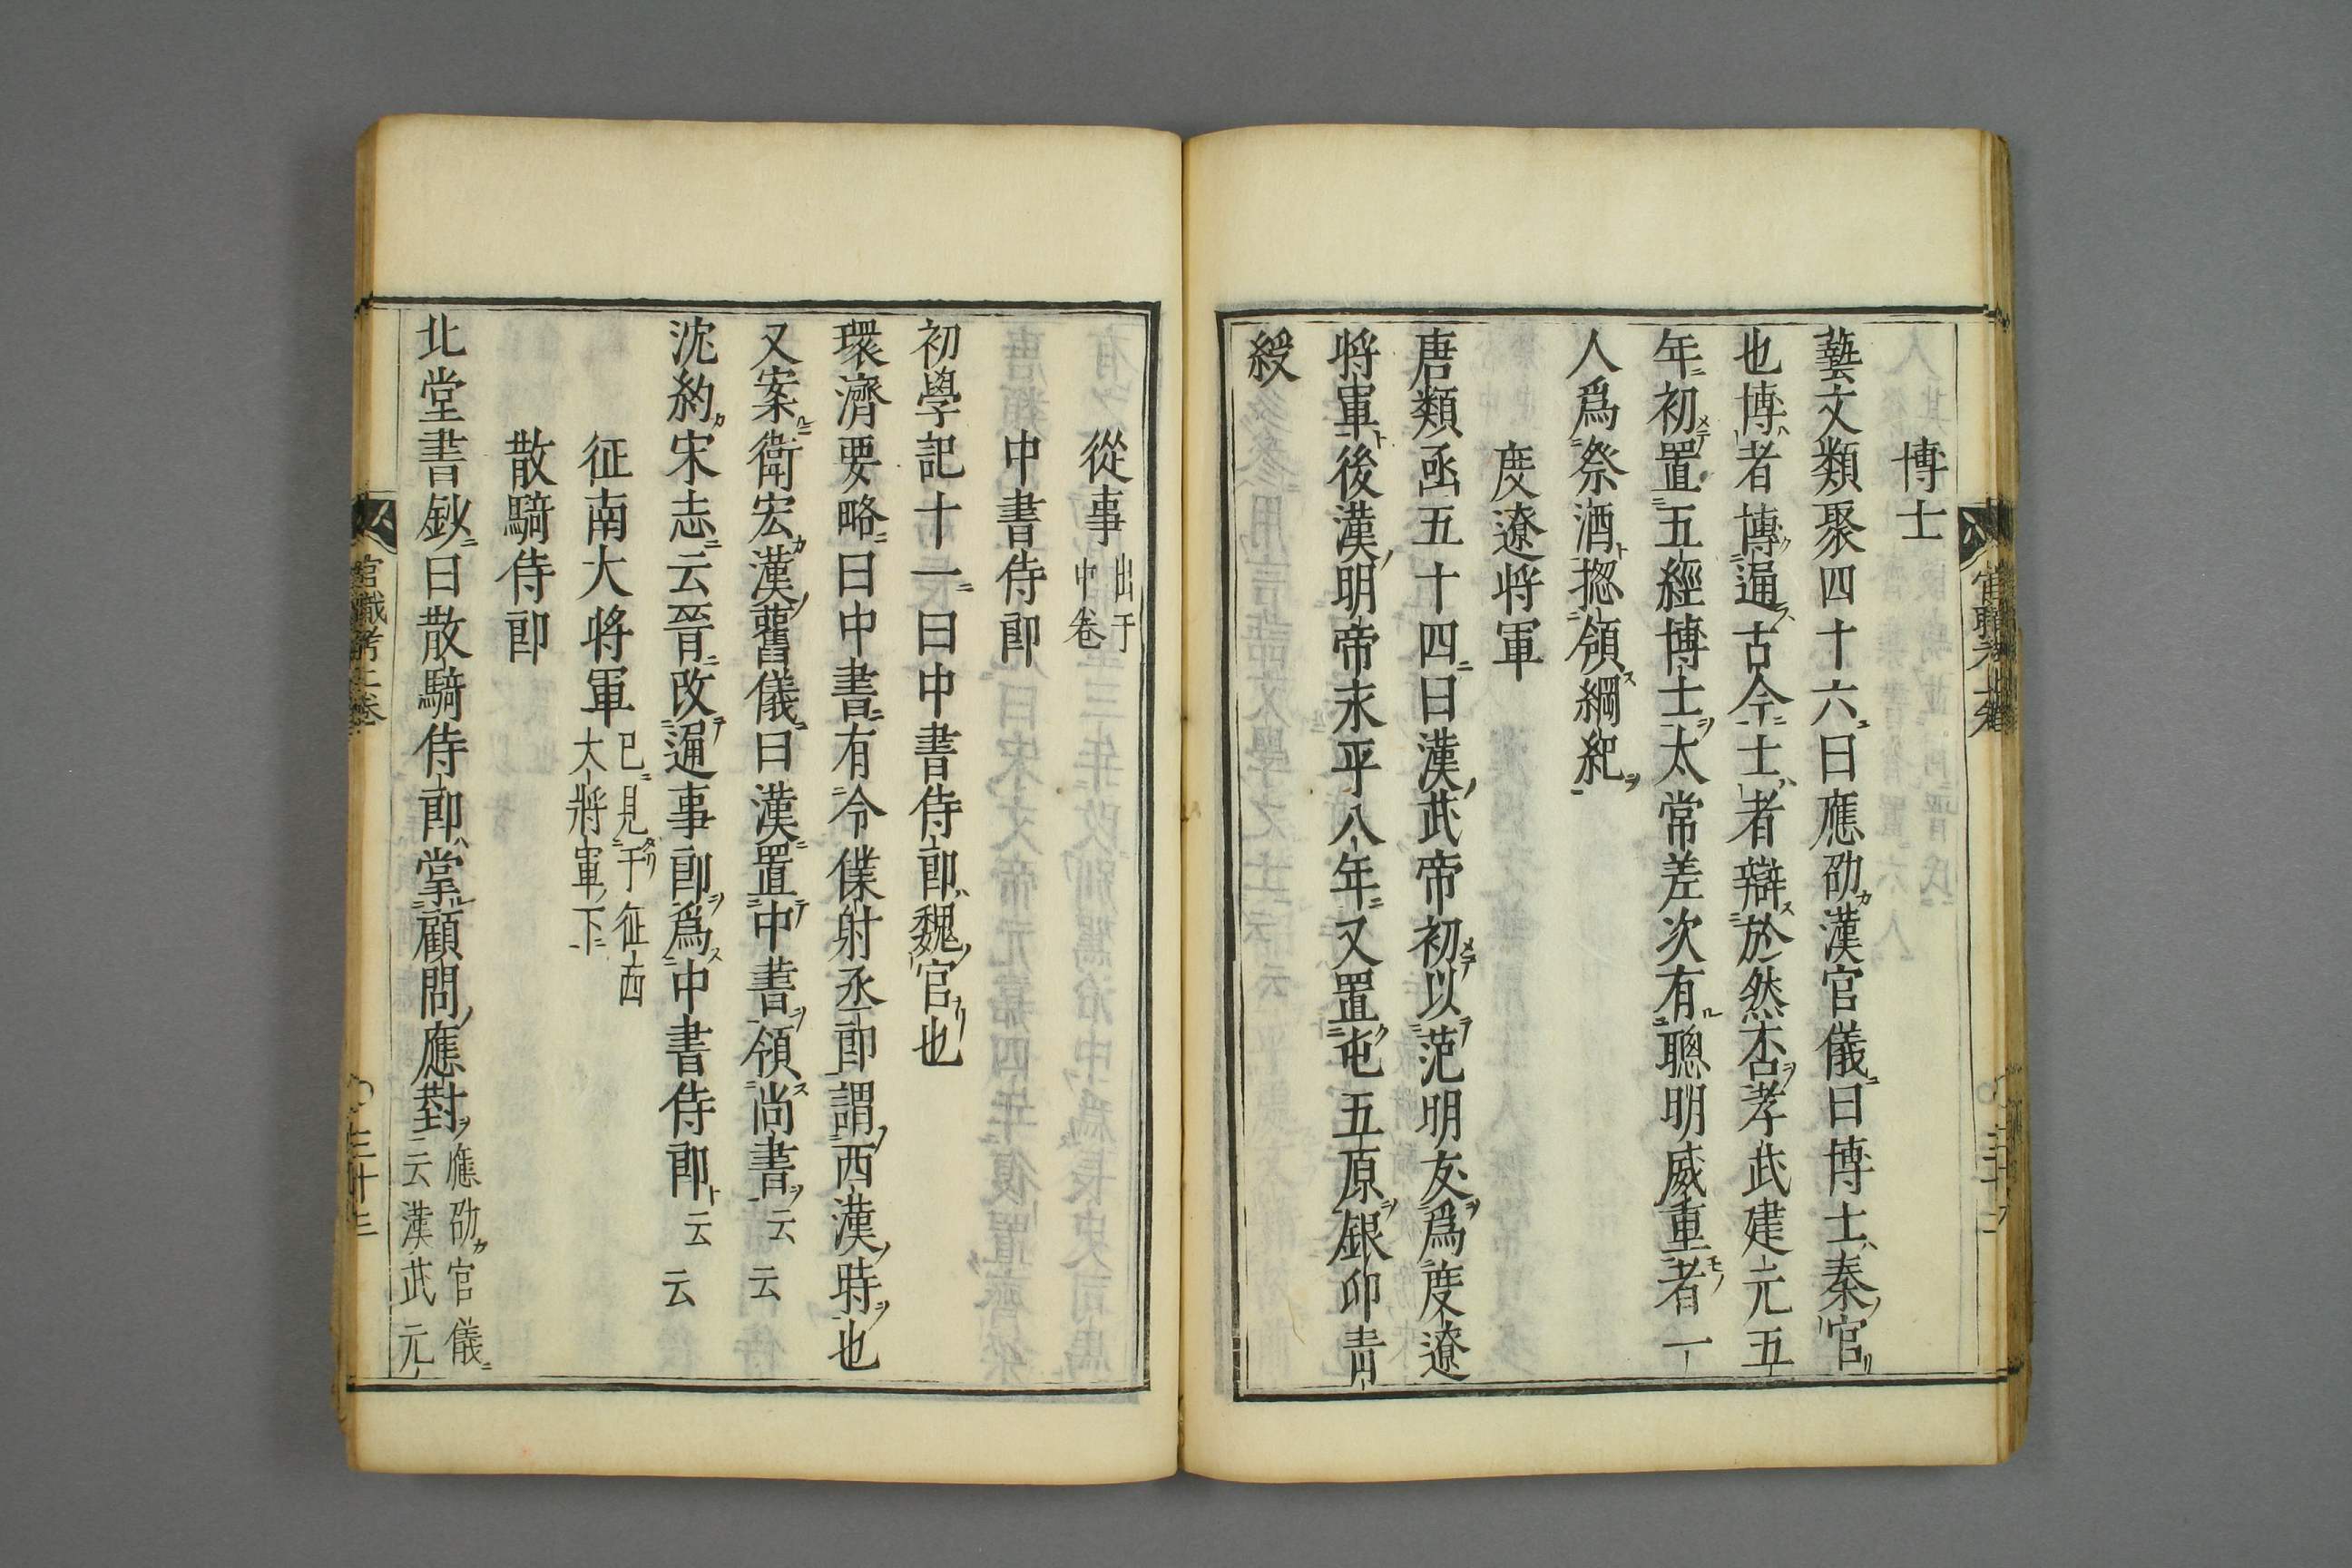 博士
藝文類聚四十六曰應劭漢官儀曰博士秦官
也博者博通古今士者辯於然否孝武建元五
年初置五經博士太常差次有聰明威重者一
人爲祭酒揔領綱紀
度遼将軍
唐類函五十四曰漢武帝初以范明友爲度遼
将軍後漢明帝永平八年又置屯五原銀印青
綬
從事出于中卷
中書侍郎
初學記十一曰中書侍郎魏官也
環濟要略曰中書有令僕射丞郎謂西漢時也
又案衛宏漢舊儀曰漢置中書領尚書云云
沈約宋志云晉改通事郎爲中書侍郎云云
征南大将軍已見于征西大將軍下
散騎侍郎
北堂書鈔曰散騎侍郎掌顧問應對應劭官儀云漢武元
官職考上卷